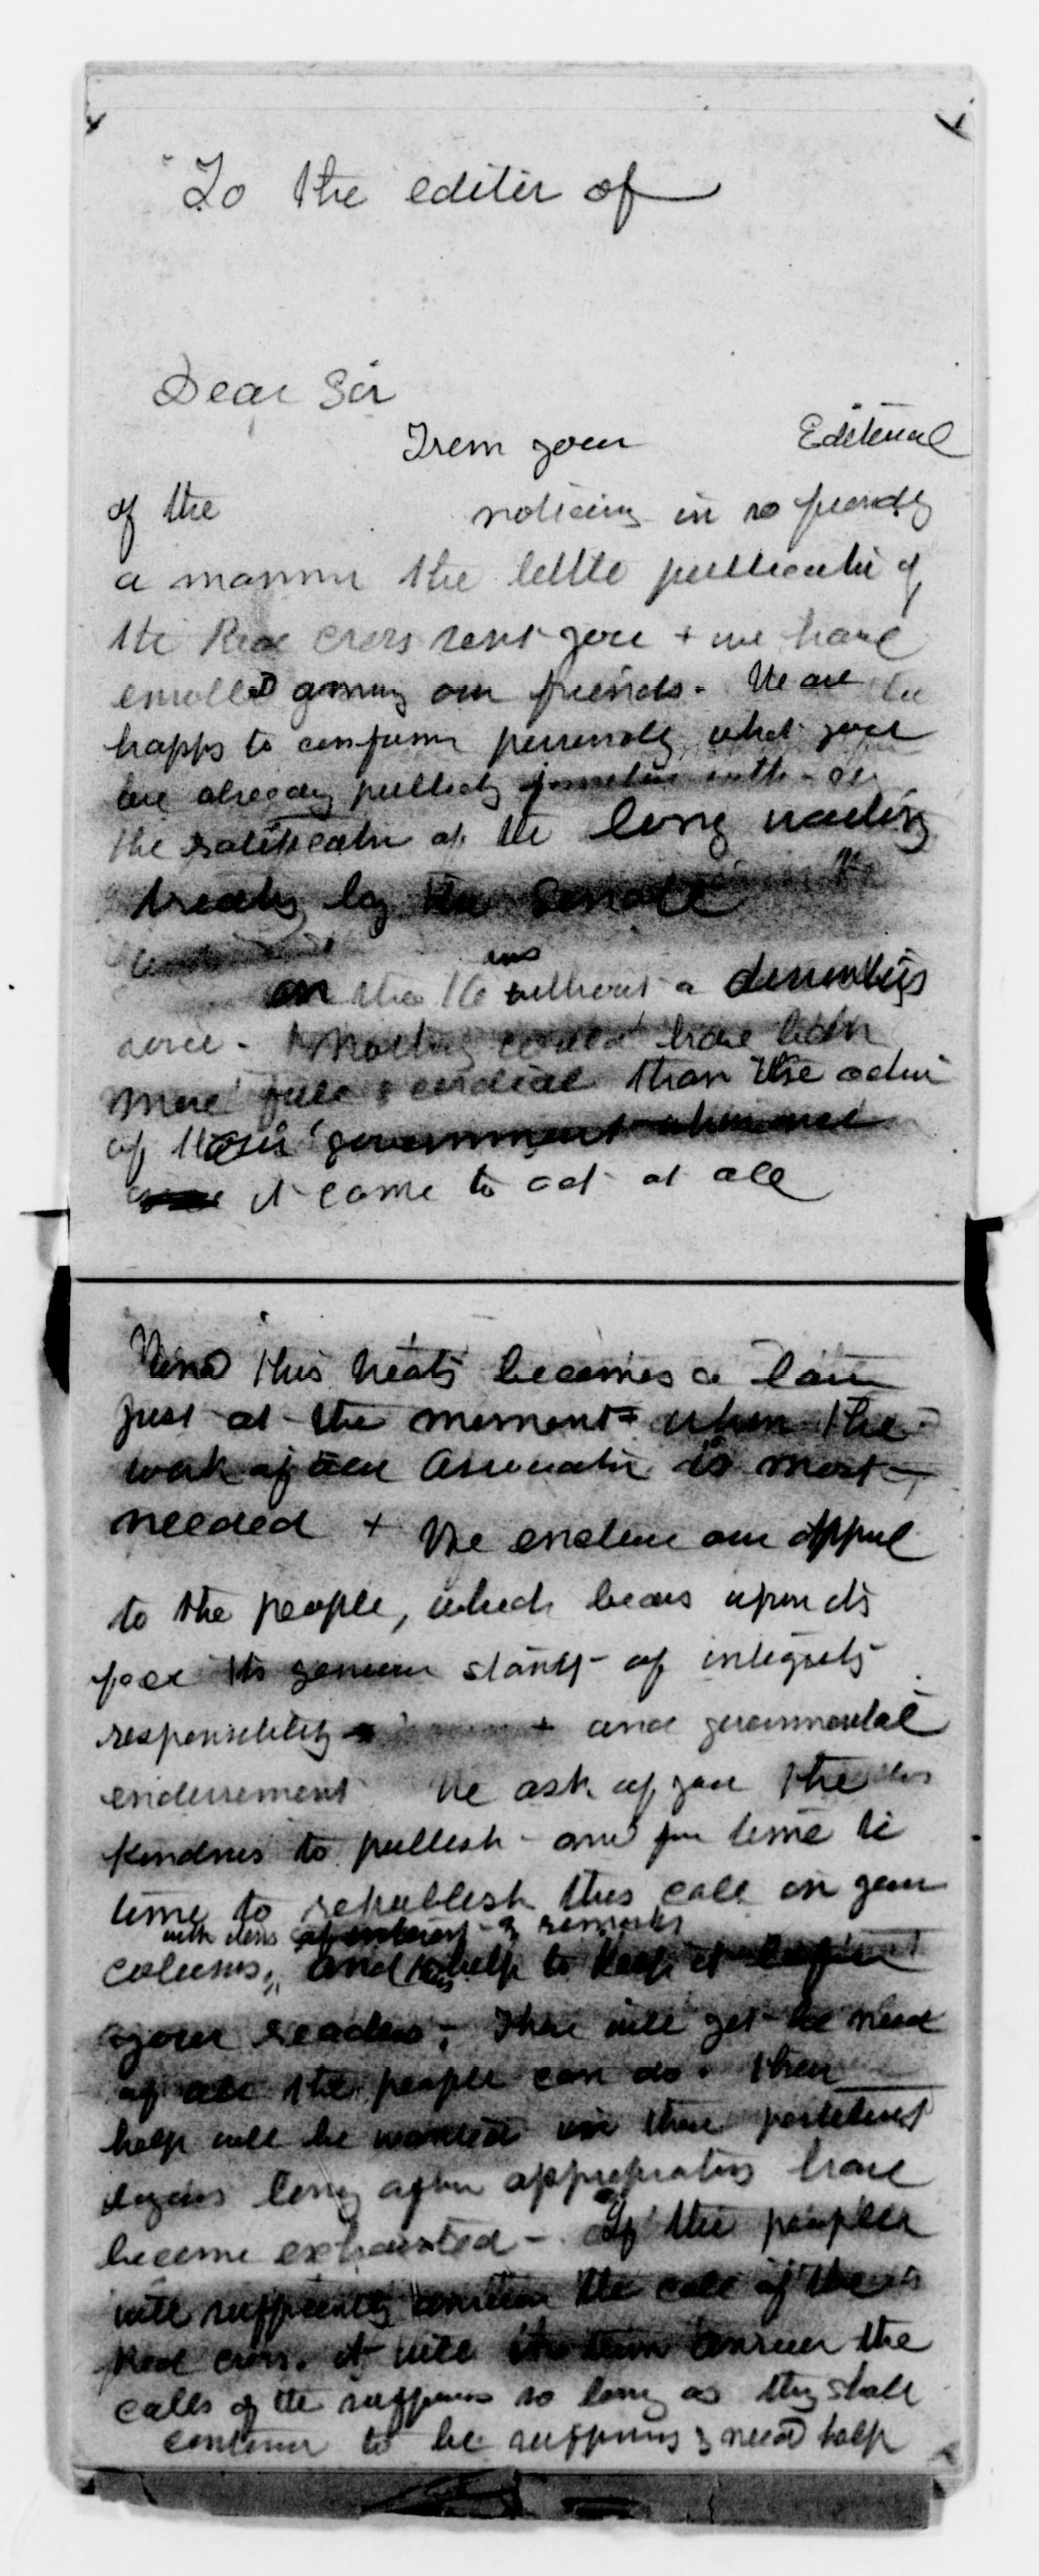 To the editer of
Dear Sir
From your Editorial
of the noticing in so friendly
a manner the little publication of
the Red Cross sent you + we have
enrolled among our friends. We are
happy to confirm personally what you
have already publicly
the ratification of the long waiting
treaty by the Senate
on the 16 ins without a dissenting
voice. Nothing could have been
more full & cordial than the action
of our government when once
it came to act at all
And this treaty becomes a law
just at the moment when the
work of our Association is most
needed + We enclose our appeal
to the people, which bears upon its
face its genuine stamp of integrity
responsibility + and governmental
endorsement We ask of you the
kindness to publish and from time to
time to republish this call in your
with remarks
columns, and thus help to keep it before
your readers. There will yet be need
of all the people can do. Their
help will be wanted in those pestilent
regions long after appropriations have
become exhausted - If the people
will sufficiently answer the call of the
Red Cross. it will in turn answer the
calls of the sufferers so long as they shall
continue to be suffering & need help